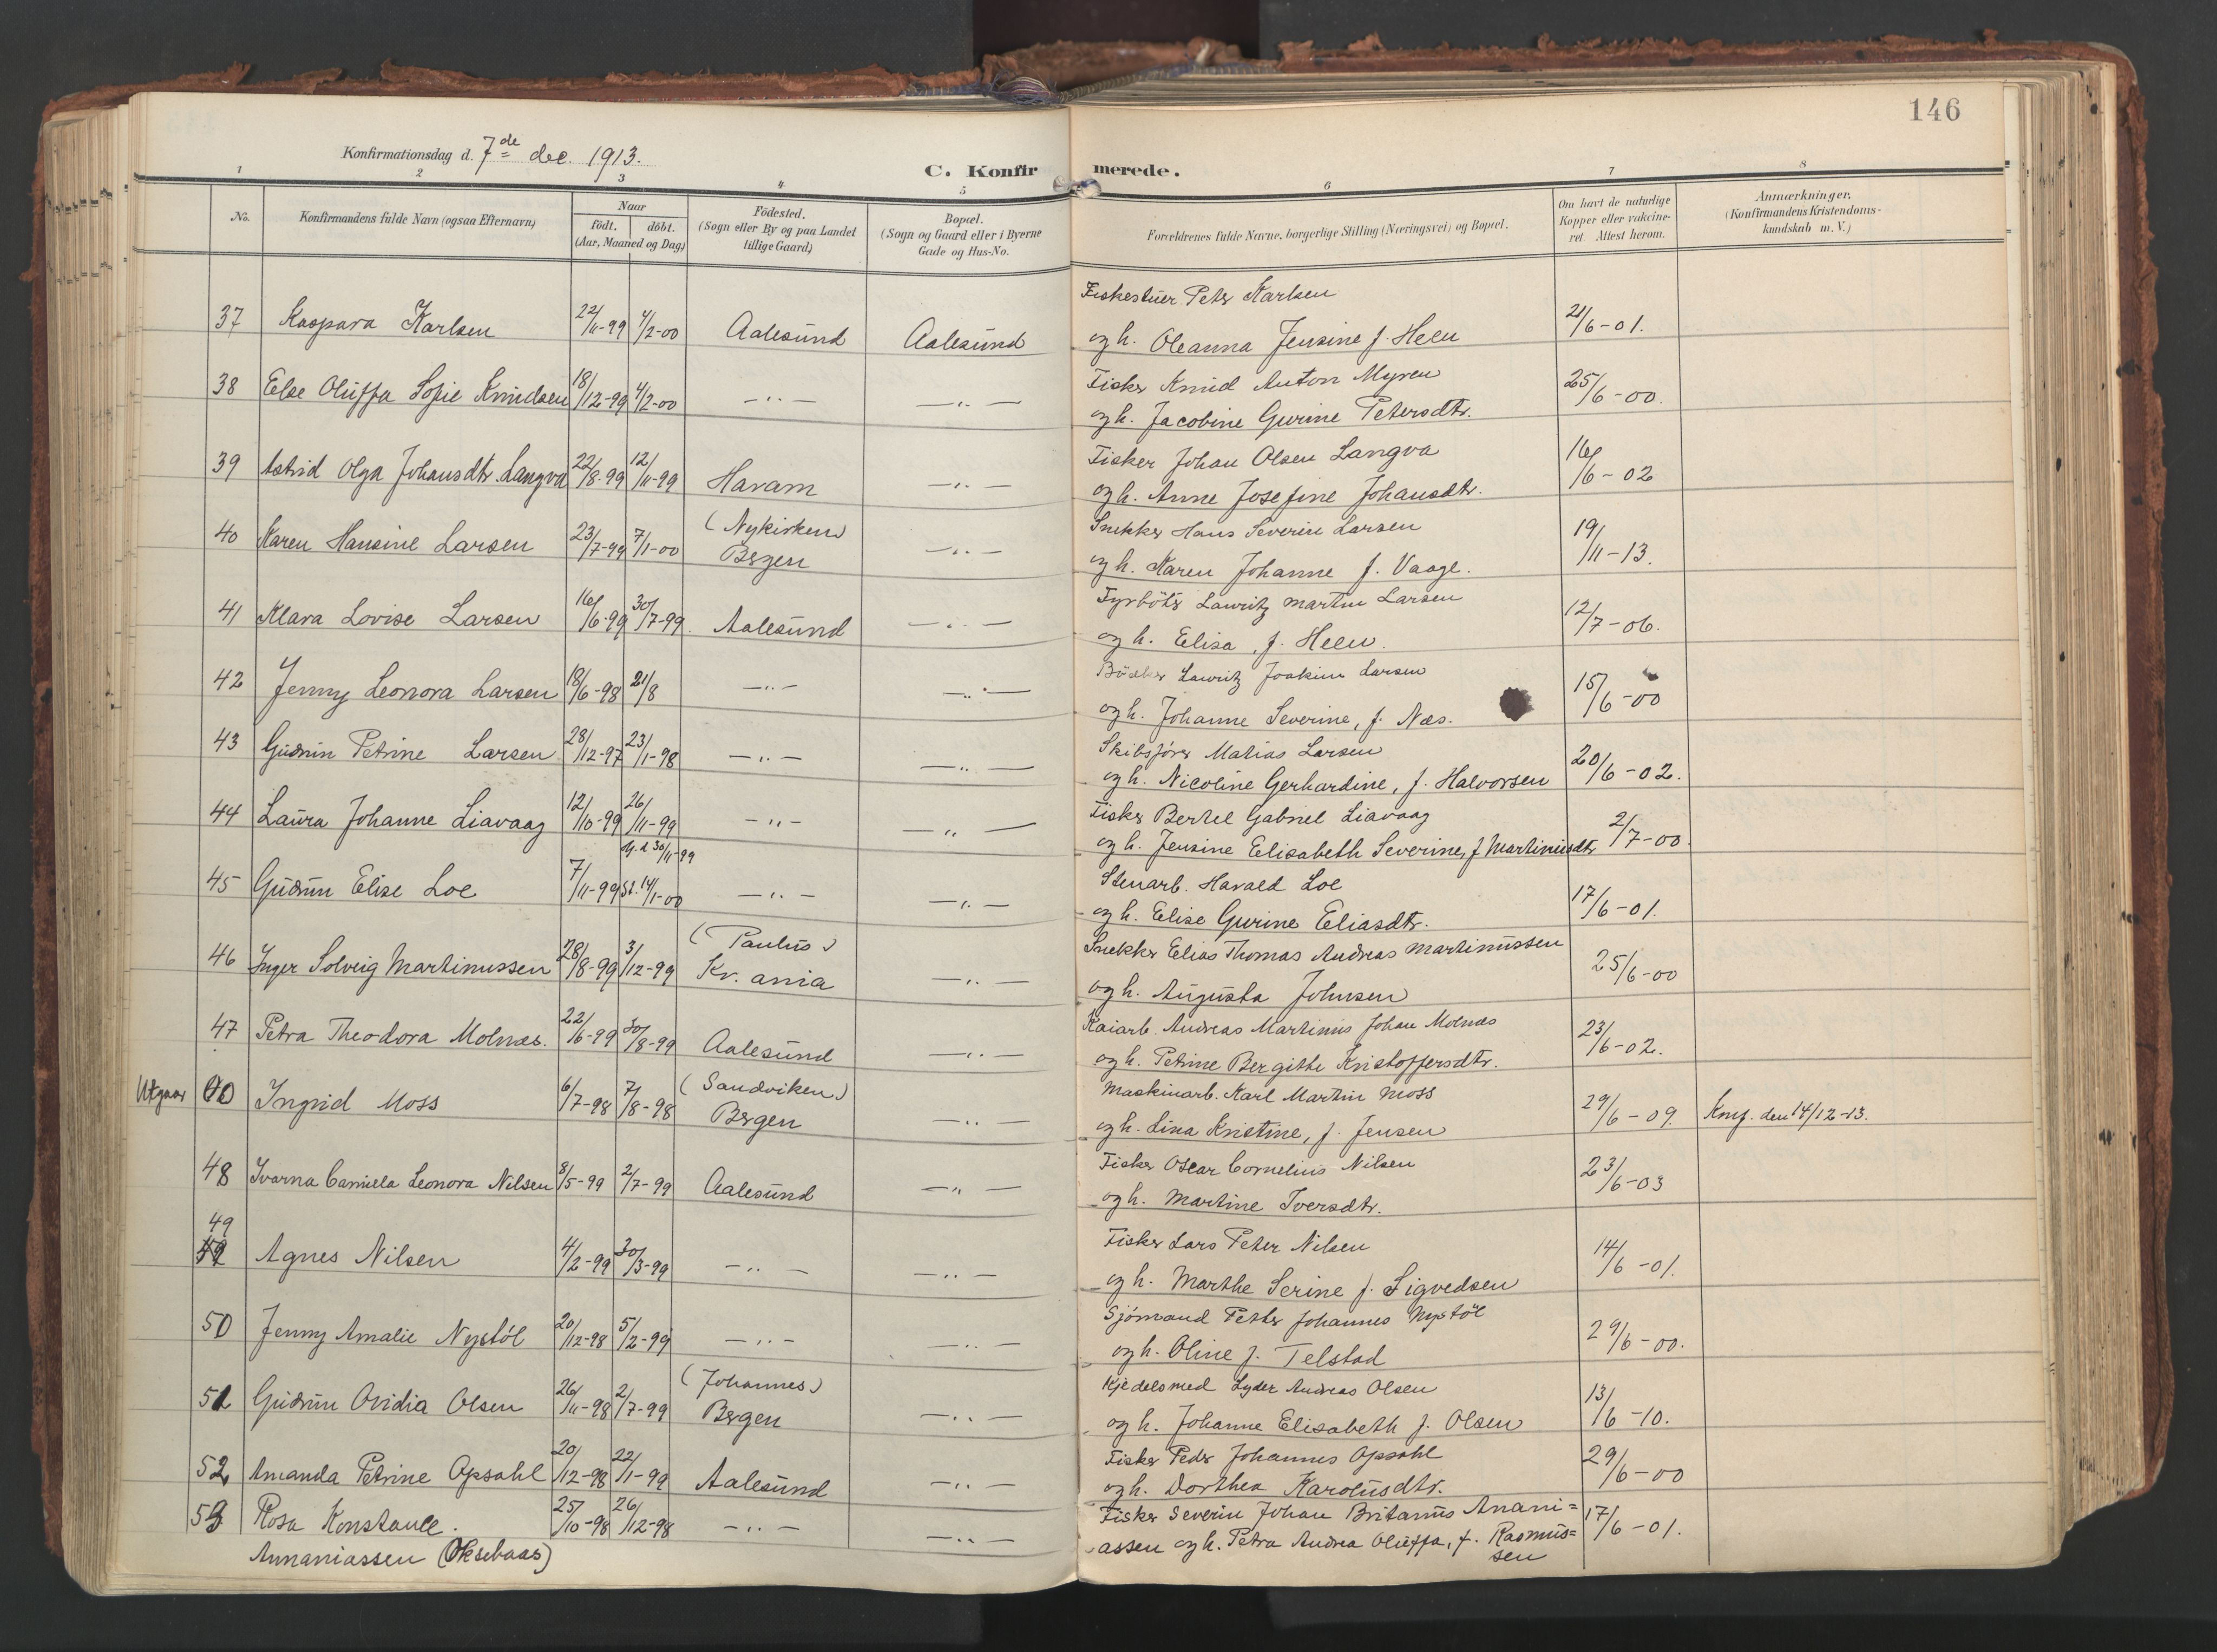 146
Konfirmationsdag d. 7de dec. 1913.
C. Konfirmerede.
1 2 3 4 5 6 7 8
No.
Konfirmandens fulde Navn (ogsaa Efternavn)
Naar
födt. döbt.
(Aar, Maaned og Dag)
Födested.
(Sogn eller By og paa Landet
tillige Gaard)
Bopæl.
(Sogn og Gaard eller i Byerne
Gade og Hus-No.
Forældrenes fulde Navne, borgerlige Stilling (Næringsvei) og Bopæl.
Om havt de naturlige
Kopper eller vakcine-
ret Attest herom.
Anmærkninger.
(Konfirmandens Kristendoms-
kundskab m. V.)
Peter Karlsen
37 Kaspara Karlsen 22/11-99 4/2-00 Aalesund Aalesund og h. Oleanna Jensine f. Heen 21/6-01.
Fisker Knud Anton Myren
38 Else Oluffa Sofie Knudsen 18/12-99 4/2-00 -"- -"- og h. Jacobine Gurine Petersdtr. 25/6-00.
Fisker Johan Olsen Langva
39 Astrid Olga Johansdtr. Langva 22/8-99 12/11-99 Haram -"- og h. Anne Josefine Johansdtr. 16/6-02
(Nykirken) Snekker Hans Severin Larsen
40 Karen Hansine Larsen 23/7-99 7/1-00 Bergen -"- og h. Karen Johanne f. Vaage. 19/11-13.
Fyrböter Lauritz Martin Larsen
41 Klara Lovise Larsen 16/6-99 30/7-99. Aalesund -"- og h. Elisa, f. Heen. 12/7-06.
Lauritz Joakim Larsen
42 Jenny Leonora Larsen 18/6-98 21/8 -"- -"- og h. Johanne Severine, f. Næs. 15/6-00
Skibsförer Matias Larsen
43 Gudrun Petrine Larsen 28/12-97 23/1-98 -"- -"- og h. Nicoline Gerhardine, f. Halvorsen 20/6-02.
Fisker Bertel Gabriel Liavaag
44 Laura Johanne Liavaag 12/10-99 26/11-99 -"- -"- og h. Jensine Elisabeth Severine, f. Martinusdtr 2/7-00.
30/11-99 Stenarb. Harald Loe
45 Gudrun Elise Loe 7/11-99 St. 14/1-00 -"- -"- og h. Elise Gurine Eliasdtr. 17/6-01.
(Paulus) Snekker Elias Thomas Andreas Martinussen
46 Inger Solveig Martinussen 28/8-99 3/12-99 Kr. ania -"- og h. Augusta Johnsen 25/6-00
Kaiarb. Andreas Martinus Johan Molnæs
47 Petra Theodora Molnæs. 22/6-99 30/8-99 Aalesund -"- og h. Petrine Bergithe Kristoffersdtr. 23/6-02.
(Sandviken) Maskinarb. Karl Martin Moss
Utgaar Ingrid Moss 6/7-98 7/8-98 Bergen -"- og h. Lina Kristine, f. Jensen 29/6-09. Konf. den 14/12-13.
Fisker Oscar Cornelius Nilsen
48 Ivarna Camilla Leonora Nilsen 8/5-99 2/7-99 Aalesund -"- og h. Martine Iversdtr. 23/6-03
49 Fisker Lars Peter Nilsen
Agnes Nilsen 4/2-99 30/3-99 -"- -"- og h. Marthe Serine f. Sigvedsen 14/6-01.
Sjömand Petter Johannes Nystöl
50 Jenny Amalie Nystöl 20/12-98 5/2-99 -"- -"- og h. Oline f. Telstad 29/6-00.
(Johannes) Kjedelsmed Lyder Andreas Olsen
51 Gudrun Ovidia Olsen 26/11-98 2/7-99 Bergen -"- og h. Johanne Elisabeth f. Olsen 13/6-10.
Fisker Peder Johannes Opsahl
52 Amanda Petrine Opsahl 20/12-98 22/1-99 Aalesund -"- og h. Dorthea Karolusdtr. 29/6-00
53 Rosa Konstance. 25/10-98 26/12-98 -"- -"- Fisker Severin Johan Britanus Anani= 17/6-01.
Annaniassen (Oksebaas) assen og h. Petra Andrea Oluffa, f. Rasmus=
sen